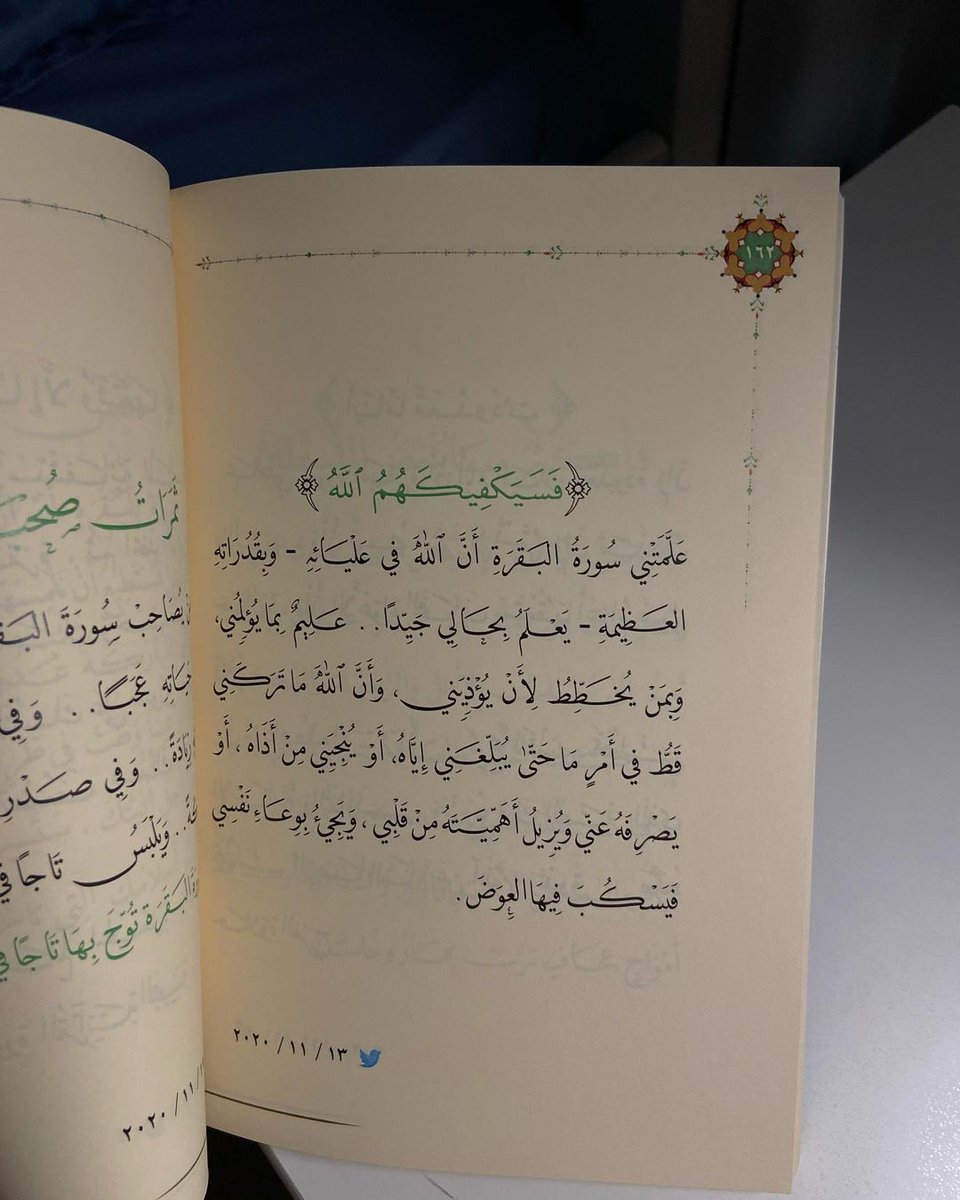 ١٦٢
﴿فَسَيَكْفِيكَهُمُ ٱللَّهُ﴾
عَلَّمَتْنِي سُورَةُ البَقَرَةِ أَنَّ ٱللَّهَ فِي عَلْيَائِهِ - وَبِقُدُرَاتِهِ
العَظِيمَةِ - يَعْلَمُ بِحَالِي جَيِّدًا.. عَلِيمٌ بِمَا يُؤلِمُنِي،
وَبِمَنْ يُخَطِّطُ لِأَنْ يُؤْذِيَنِي، وَأَنَّ ٱللَّهَ مَا تَرَكَنِي
قَطُّ فِي أَمْرٍ مَا حَتَّىٰ يُبَلِّغَنِي إِيَّاهُ، أَوْ يُنْجِيَنِي مِنْ أَذَاهُ، أَوْ
يَصْرِفَهُ عَنِّي وَيُزِيلُ أَهَمِّيَّتَهُ مِنْ قَلْبِي، وَيَجِيءُ بِوِعَاءِ نَفْسِي
فَيَسْكُبَ فِيهَا العِوَضَ.
١٣ / ١١ / ٢٠٢٠
ثَمَرَاتُ
يُصَاحِبْ سُورَةَ
عَجَبًا.. وَفِي
زِيَادَةً.. وَفِي صَدْرِ
وَيَلْبَسُ تَاجًا فِي
البَقَرَة تُوِّجَ بِهَا تَاجًا فِي
١١ / ٢٠٢٠